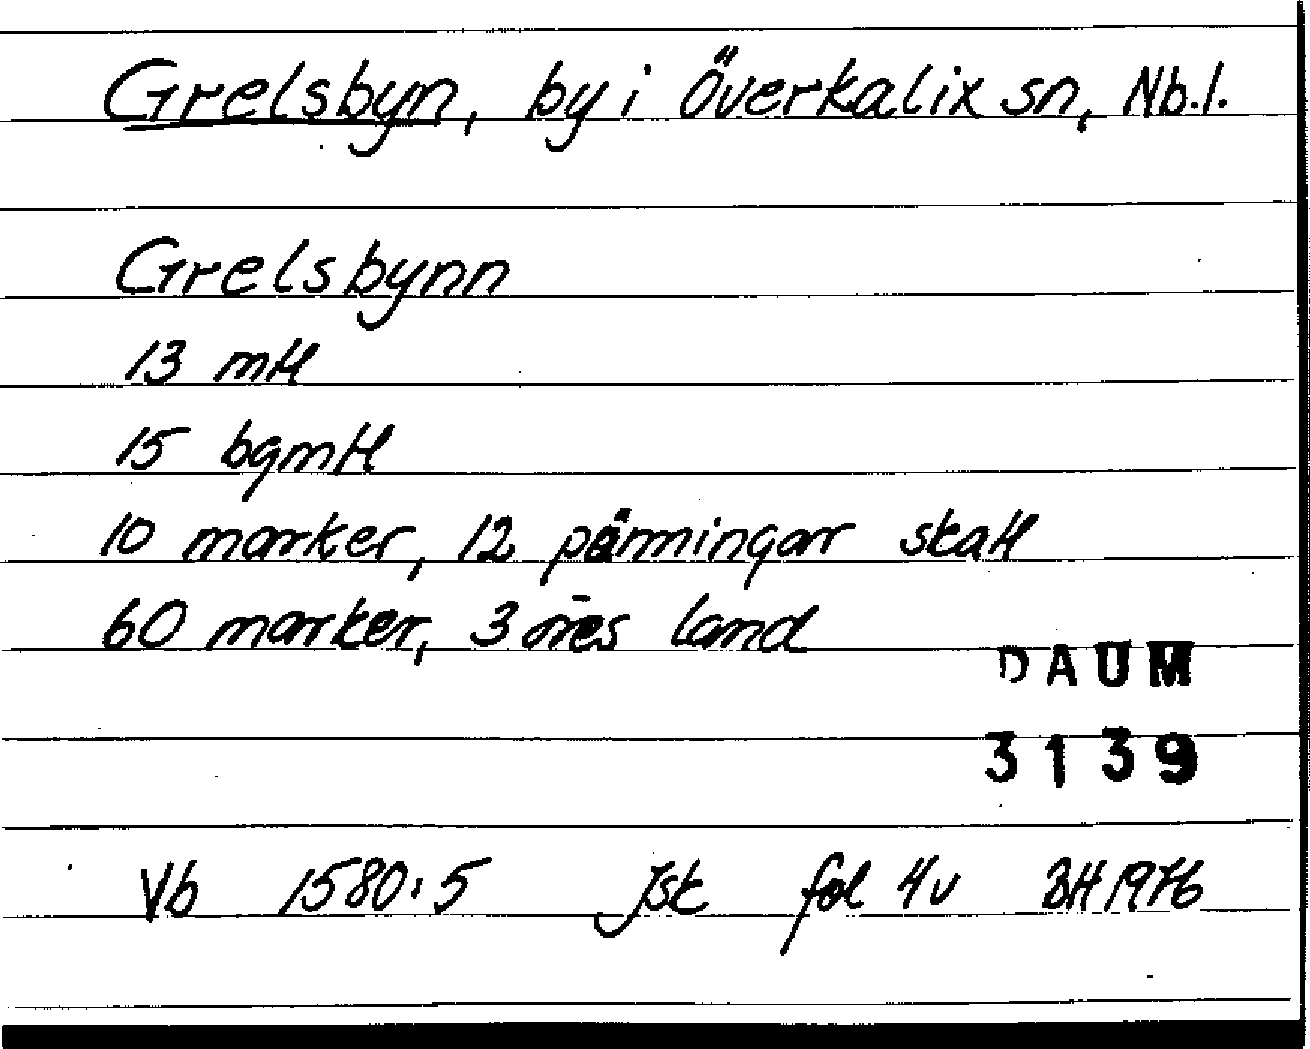 Grelsbyn, by i Överkalix sn, Nb.l.
Grelsbynn
13 mtl
15 bgmtl
10 marker, 12 pänningar skatt
60 marker, 3 öres land
DAUM
3139
Vb 1580:5 Jsk fol 4v BH 1976